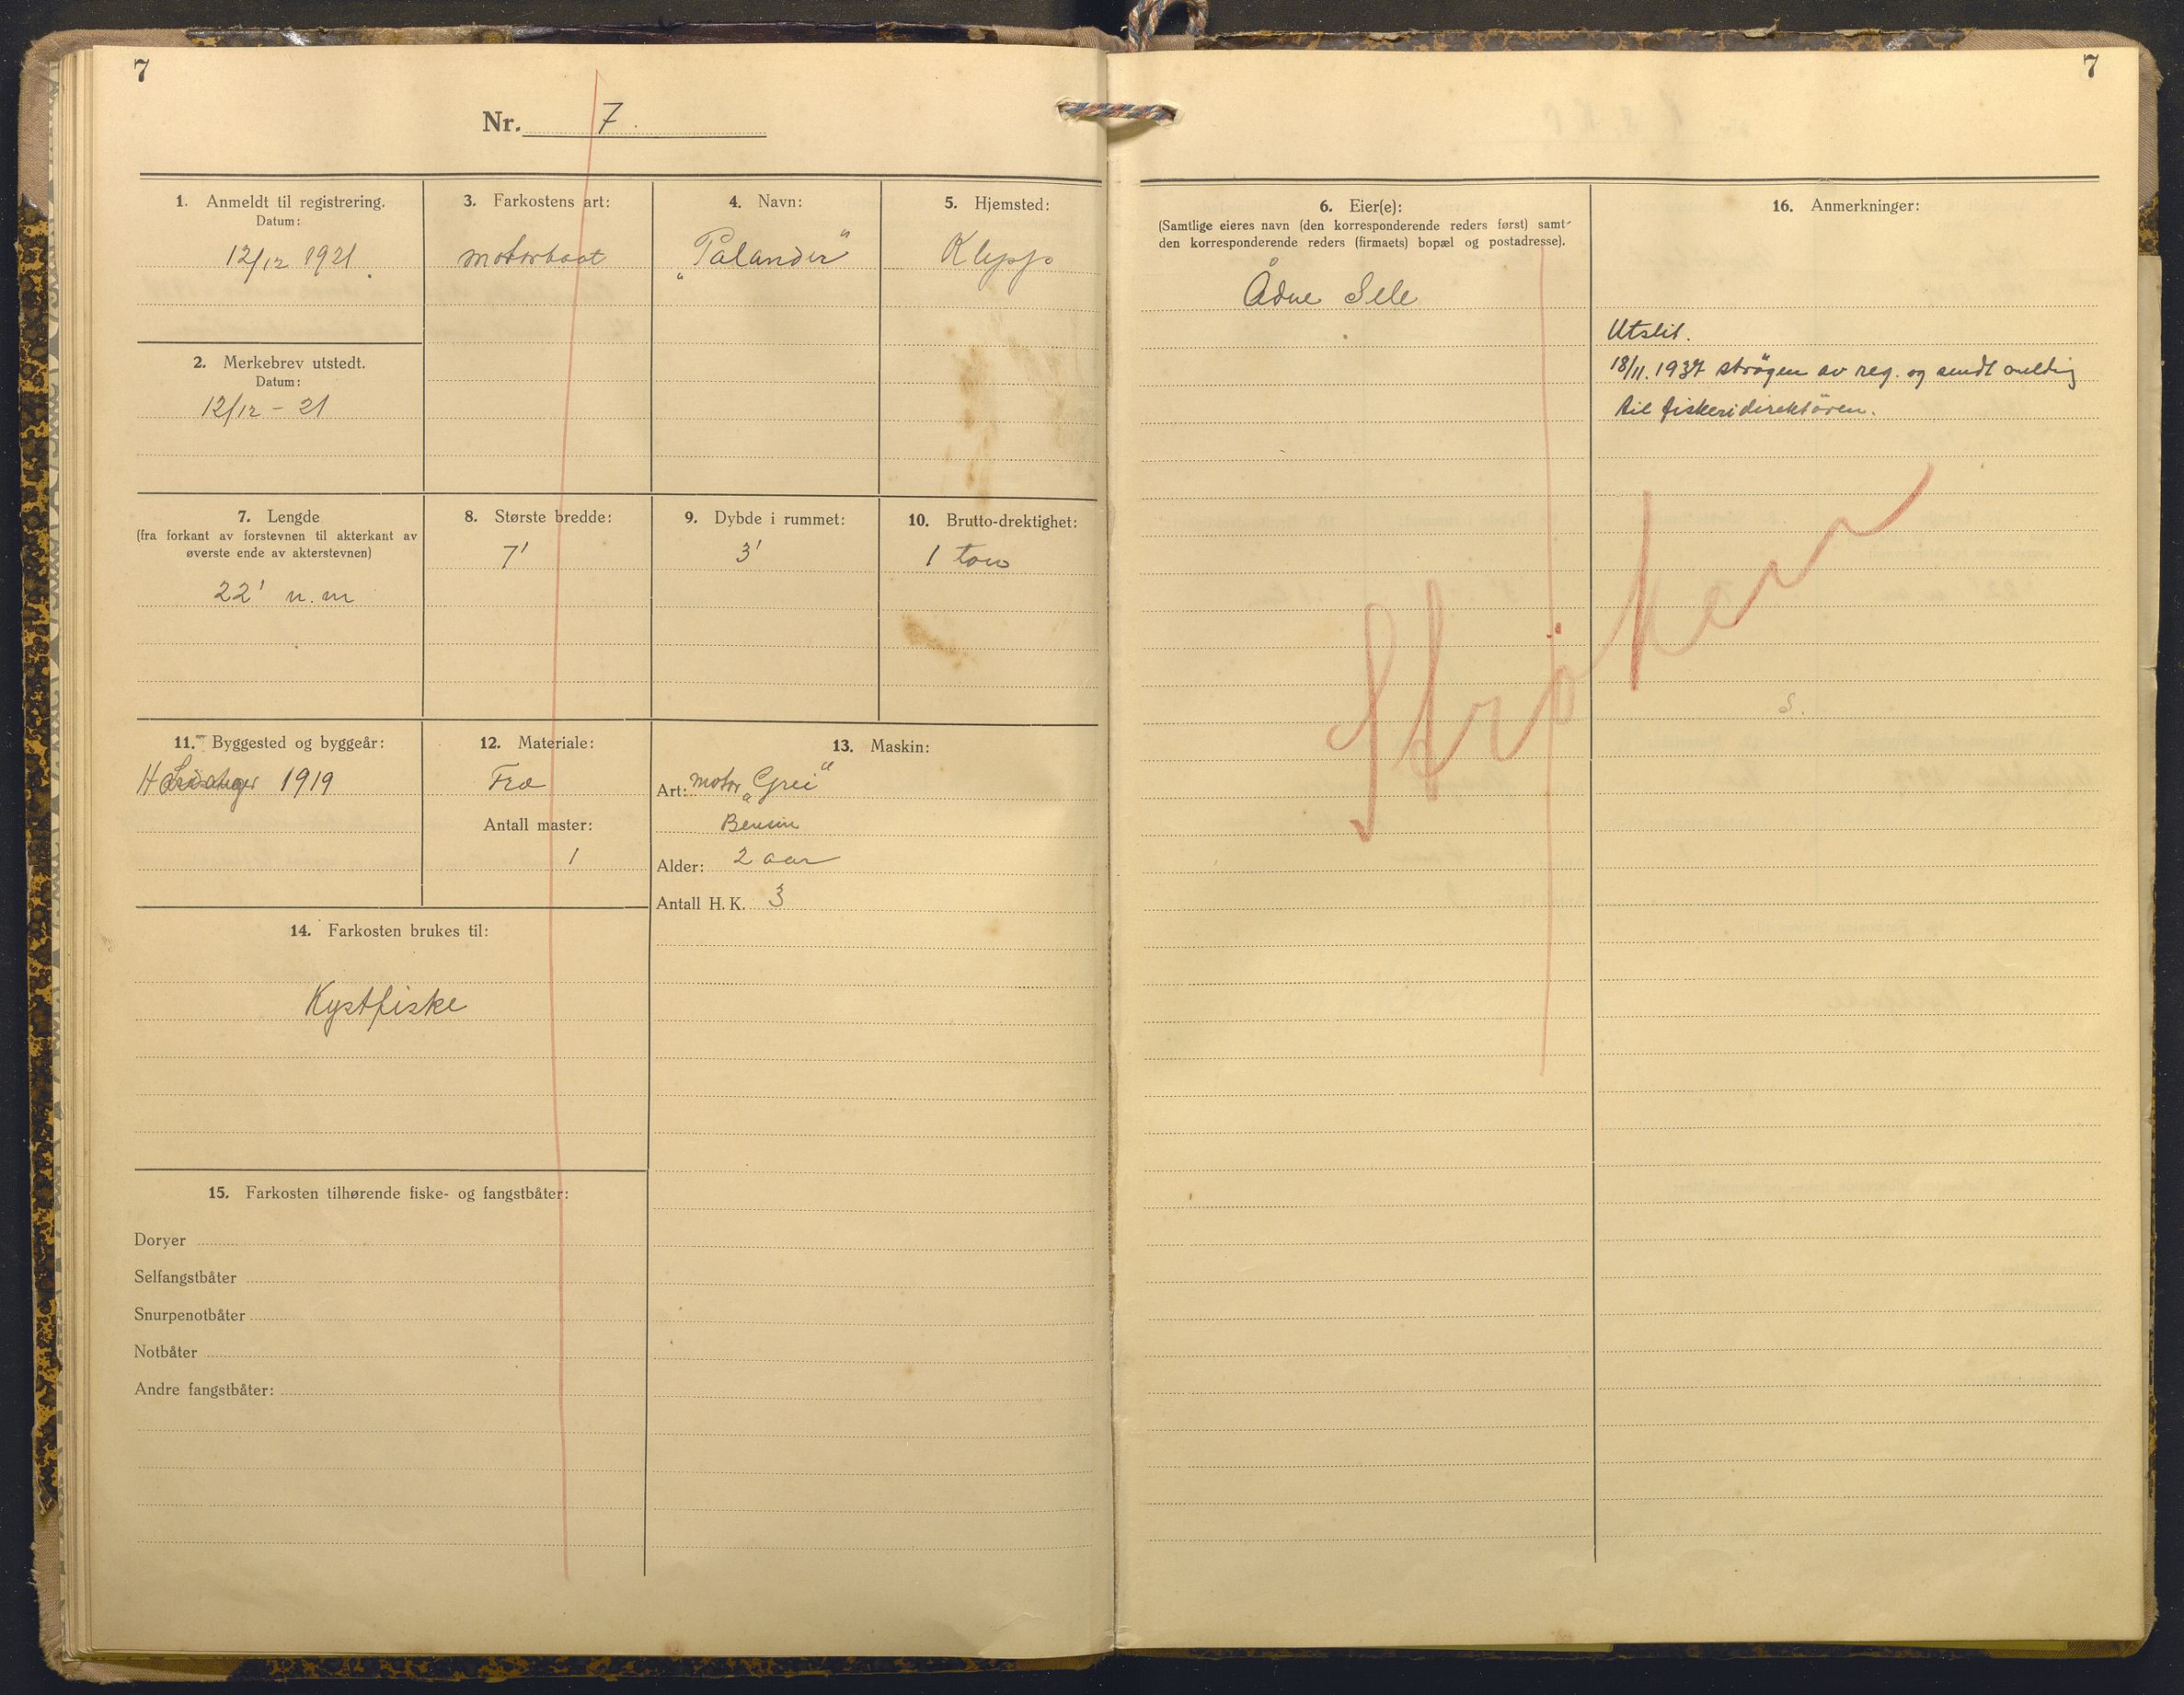 7
Nr. 7.
1. Anmeldt til registrering.
Datum:
12/12 1921.
3. Farkostens art:
motorbaat
4. Navn:
„Palander“
5. Hjemsted:
Klepp
2. Merkebrev utstedt.
Datum:
12/12 – 21
7. Lengde
(fra forkant av forstevnen til akterkant av
øverste ende av akterstevnen)
22' n.m
8. Største bredde:
7'
9. Dybde i rummet:
3'
10. Brutto-drektighet:
1 ton
11. Byggested og byggeår:
1919
12. Materiale:
Træ
Antall master:
1
13. Maskin:
Art: motor „Grei“
Bensin
Alder: 2 aar
Antall H. K. 3
14. Farkosten brukes til:
Kystfiske
15. Farkosten tilhørende fiske- og fangstbåter:
Doryer
Selfangstbåter
Snurpenotbåter
Notbåter
Andre fangstbåter:
7
6. Eier(e):
(Samtlige eieres navn (den korresponderende reders først) samt
den korresponderende reders (firmaets) bopæl og postadresse).
Ådne Sele
16. Anmerkninger:
Utslit.
18/11. 1937 strøgen av reg. og sendt melding
til fiskeridirektøren.
Strøken
S.